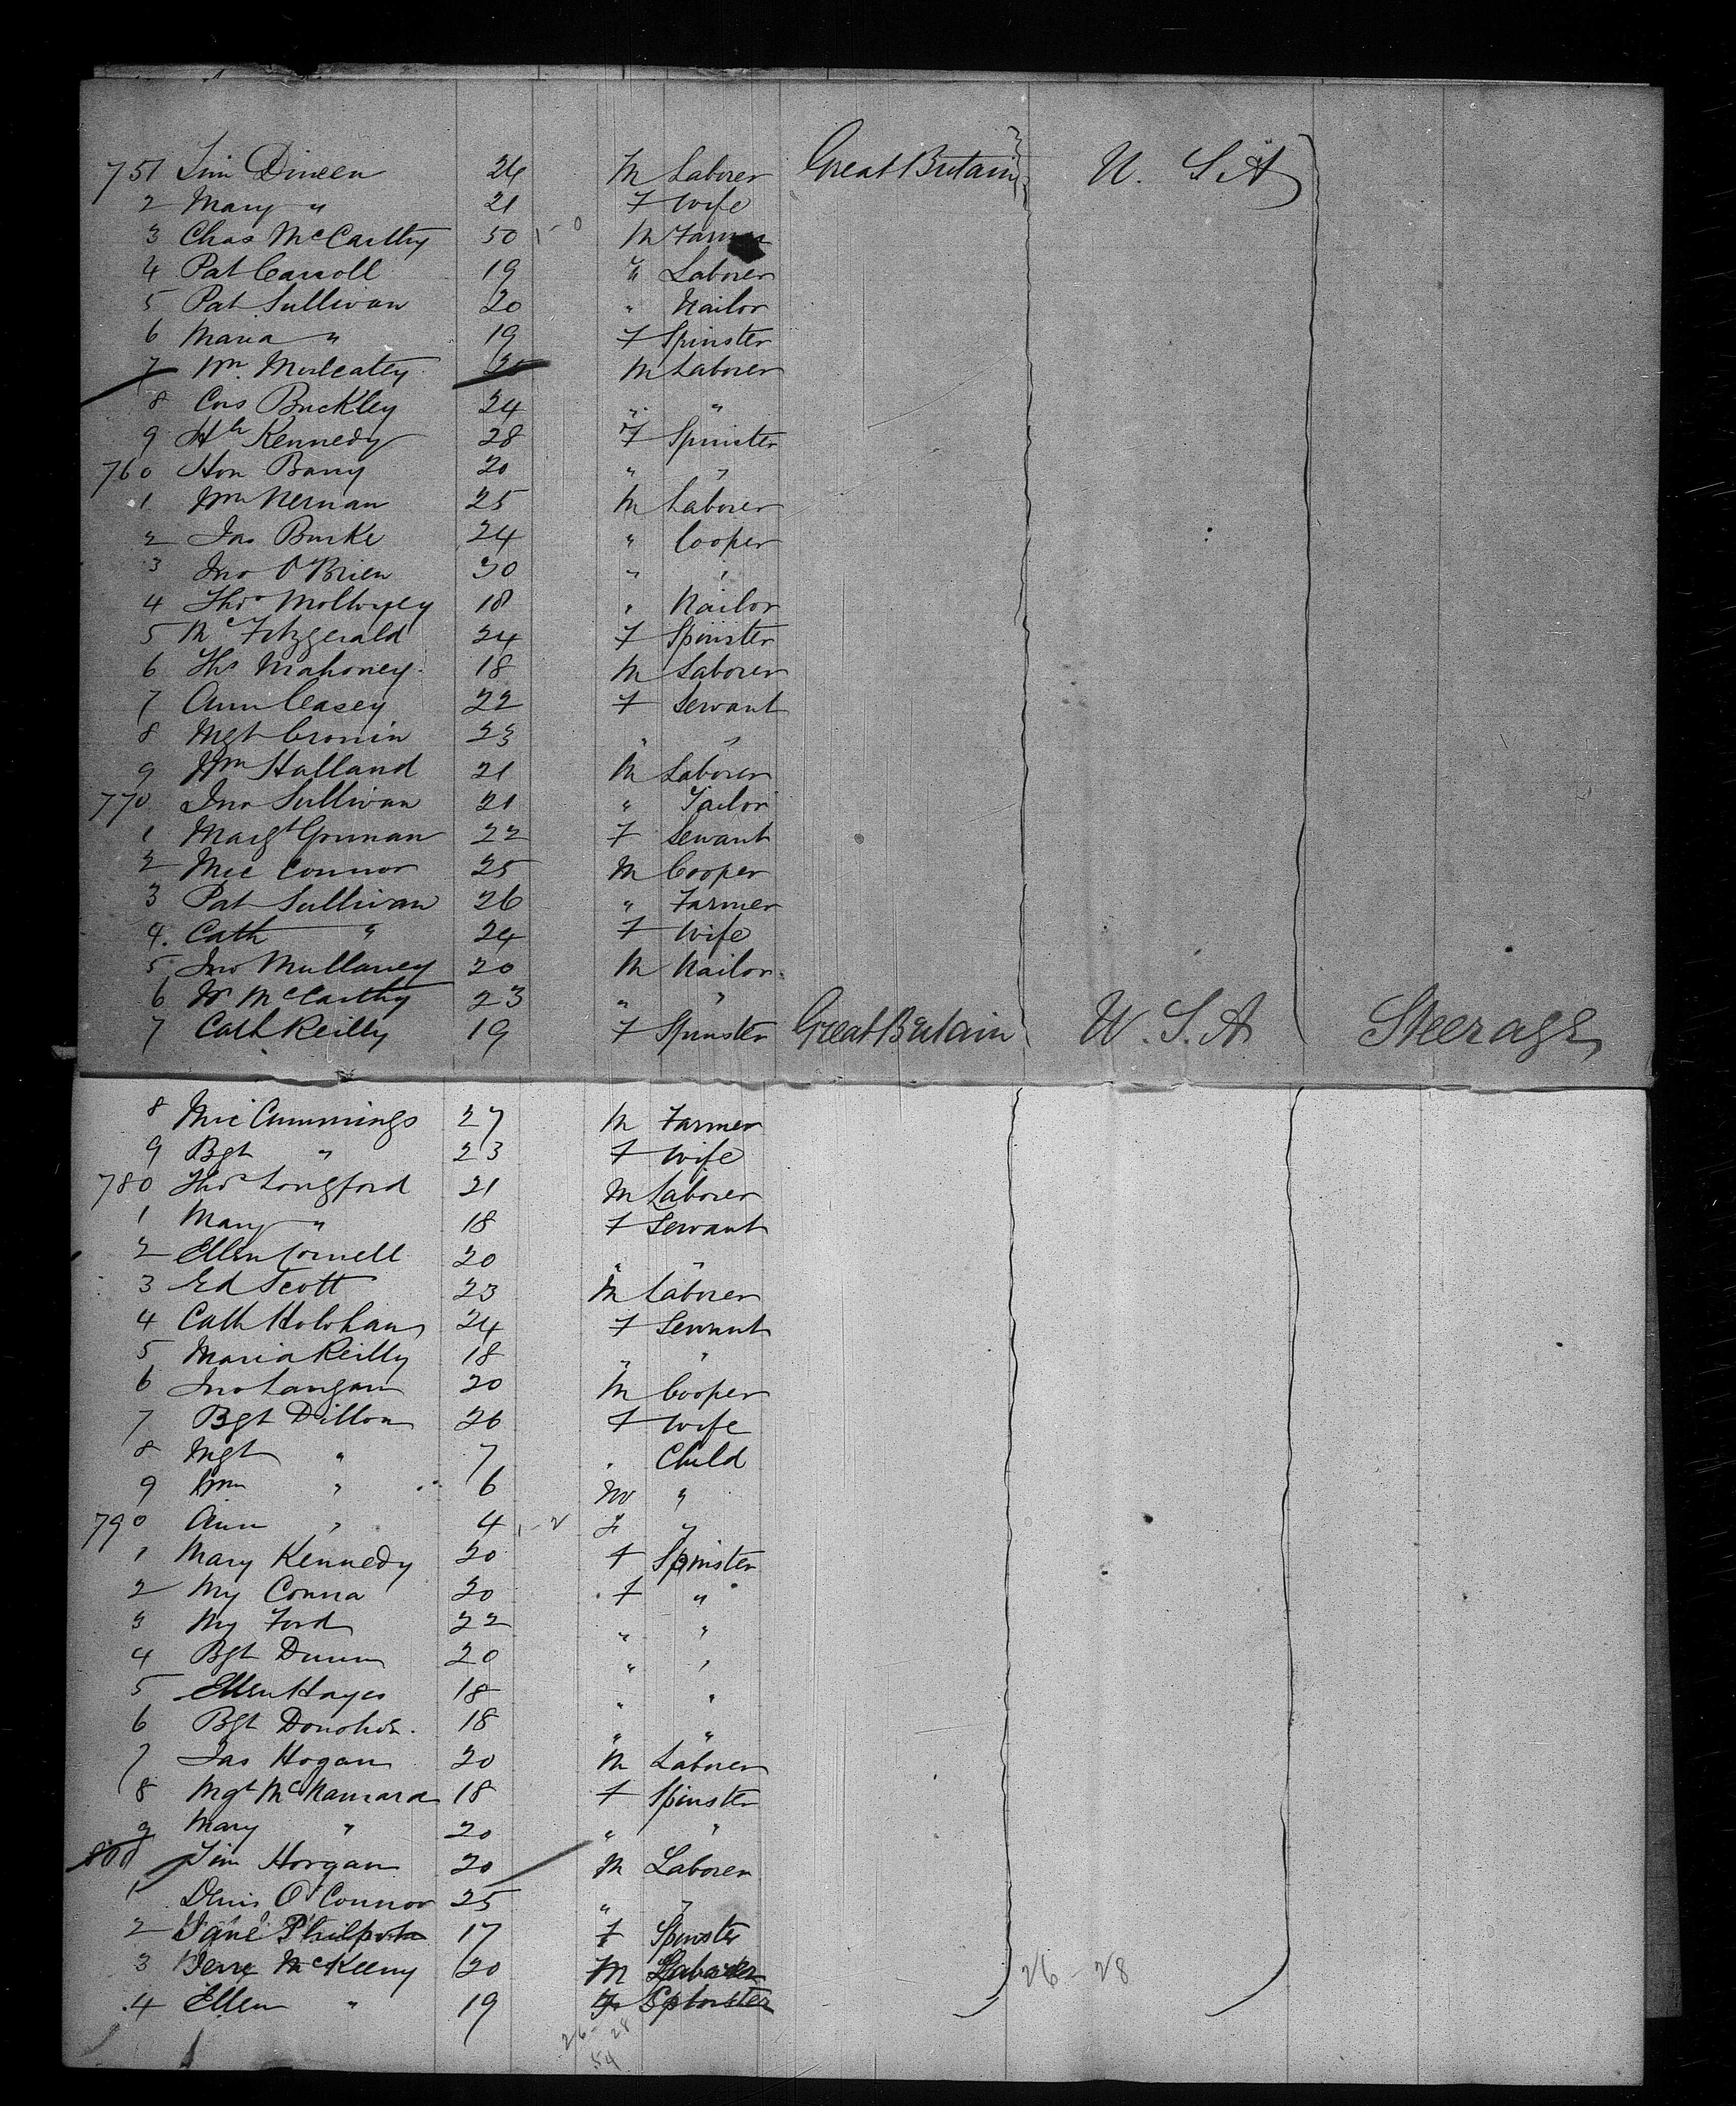 751 Tim Dineen 24 M Laborer Great Britain U. S. A
2 Mary " 21 F Wife
3 Chas McCarthy 50 1-0 M Farmer
4 Pat Carroll 19 " Laborer
5 Pat Sullivan 20 " Nailor
6 Maria " 19 F Spinster
7 Wm. Mulcatey 20 M Laborer
8 Cors Buckley 24 " "
9 Hr Kennedy 28 F Spinster
760 Hon Barry 20 " "
1 Wm Nernan 25 M Laborer
2 Jas Burke 24 " Cooper
3 Jno O'Brien 30 " "
4 Thos 18 " Nailor
5 Mc Fitzgerald 24 F Spinster
6 Ths Mahoney 18 M Laborer
7 Ann Casey 22 F Servant
8 Mgt Cronin 23 " "
9 Wm Halland 21 M Laborer
770 Jno Sullivan 21 " Tailor
1 Margt Gorman 22 F Servant
2 Mic Connor 25 M Cooper
3 Pat Sullivan 26 " Farmer
4. Cath " 24 F Wife
5 Jno Mullaney 20 M Nailor
6 W McCarthy 23 " "
7 Cath Reilly 19 F Spinster Great Britain U. S. A Steerage
8 Mic Cummings 27 M Farmer
9 Bgt " 23 F Wife
780 Thos Longford 21 M Laborer
1 Mary " 18 F Servant
2 Ellen Cornell 20 " "
3 Ed Scott 23 M Laborer
4 Cath Holohan 24 F Servant
5 Maria Reilly 18 " "
6 Jno Langan 20 M Cooper
7 Bgt Dillon 26 F Wife
8 Mgt " 7 " Child
9 Wm " 6 M "
790 Ann " 4 1-2 F "
1 Mary Kennedy 20 F Spinster
2 My Conna 20 F "
3 My Ford 22 " "
4 Bgt Dunn 20 " "
5 Ellen Hayes 18 " "
6 Bgt Donohoe 18 " "
7 Jas Hogan 20 M Laborer
8 Mgt McNamara 18 F Spinster
9 Mary " 20 " "
800 Tim Horgan 20 M Laborer
1 Denis O'Connor 25 " "
2 Jane Philpots 17 F Spinster
3 Jerre McKeeny 20 M Laborer 26-28
4 Ellen " 19 F Spinster
26-28
54